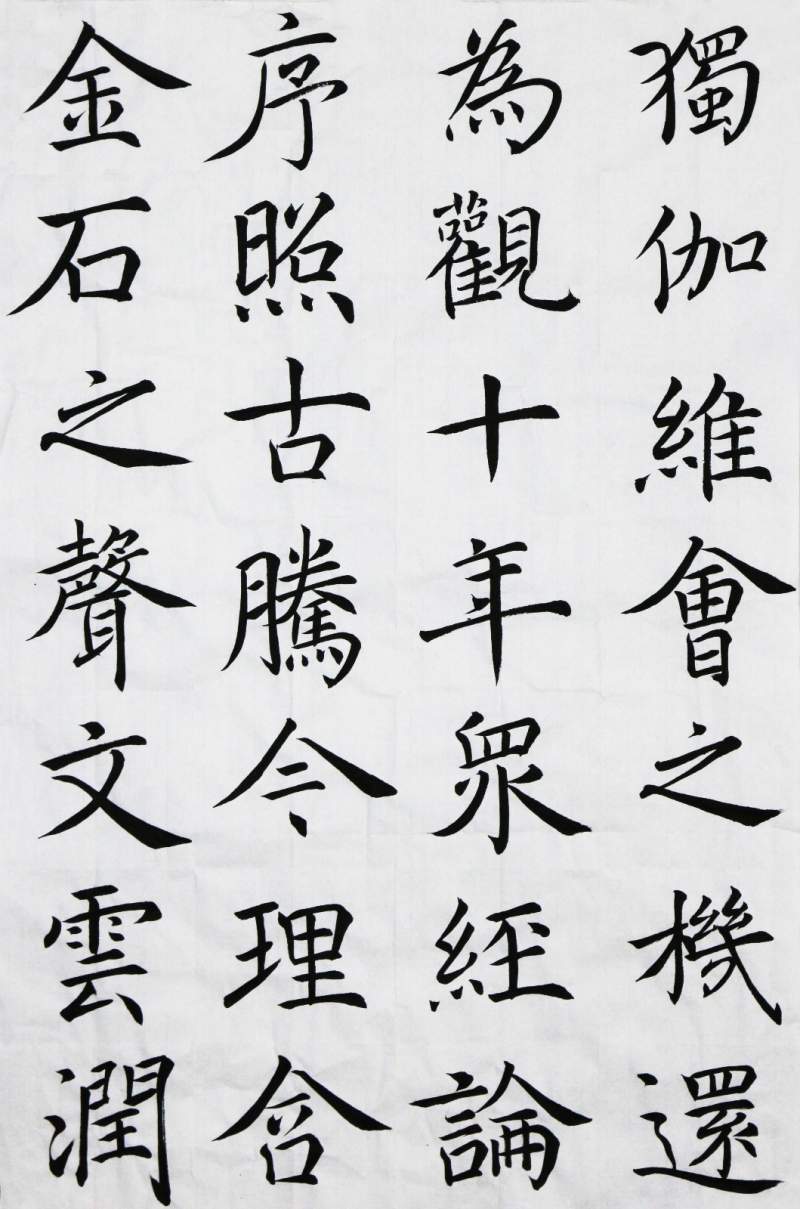 獨伽維會之機還
為觀十年眾經論
序照古騰今理含
金石之聲文雲潤